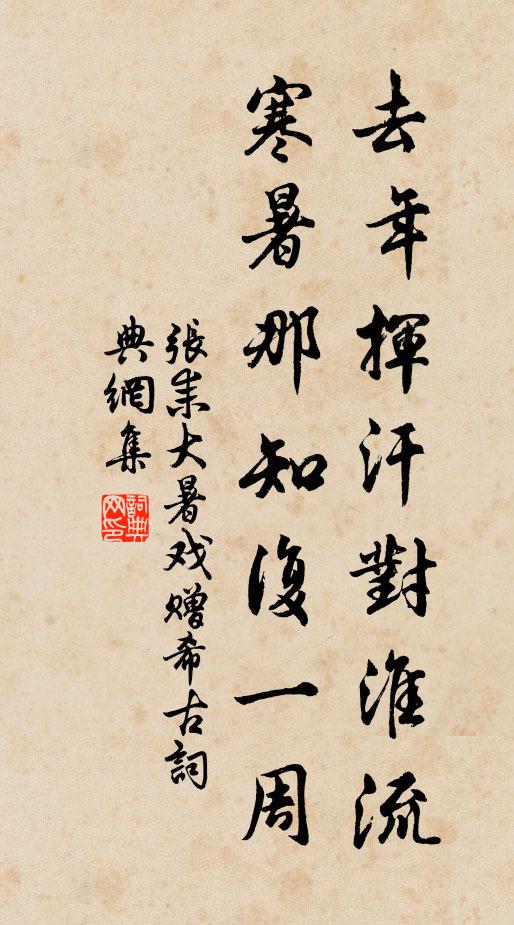 去年揮汗對淮流
寒暑那知復一周
張耒大暑戏赠希古詞
典網集
詞典网印